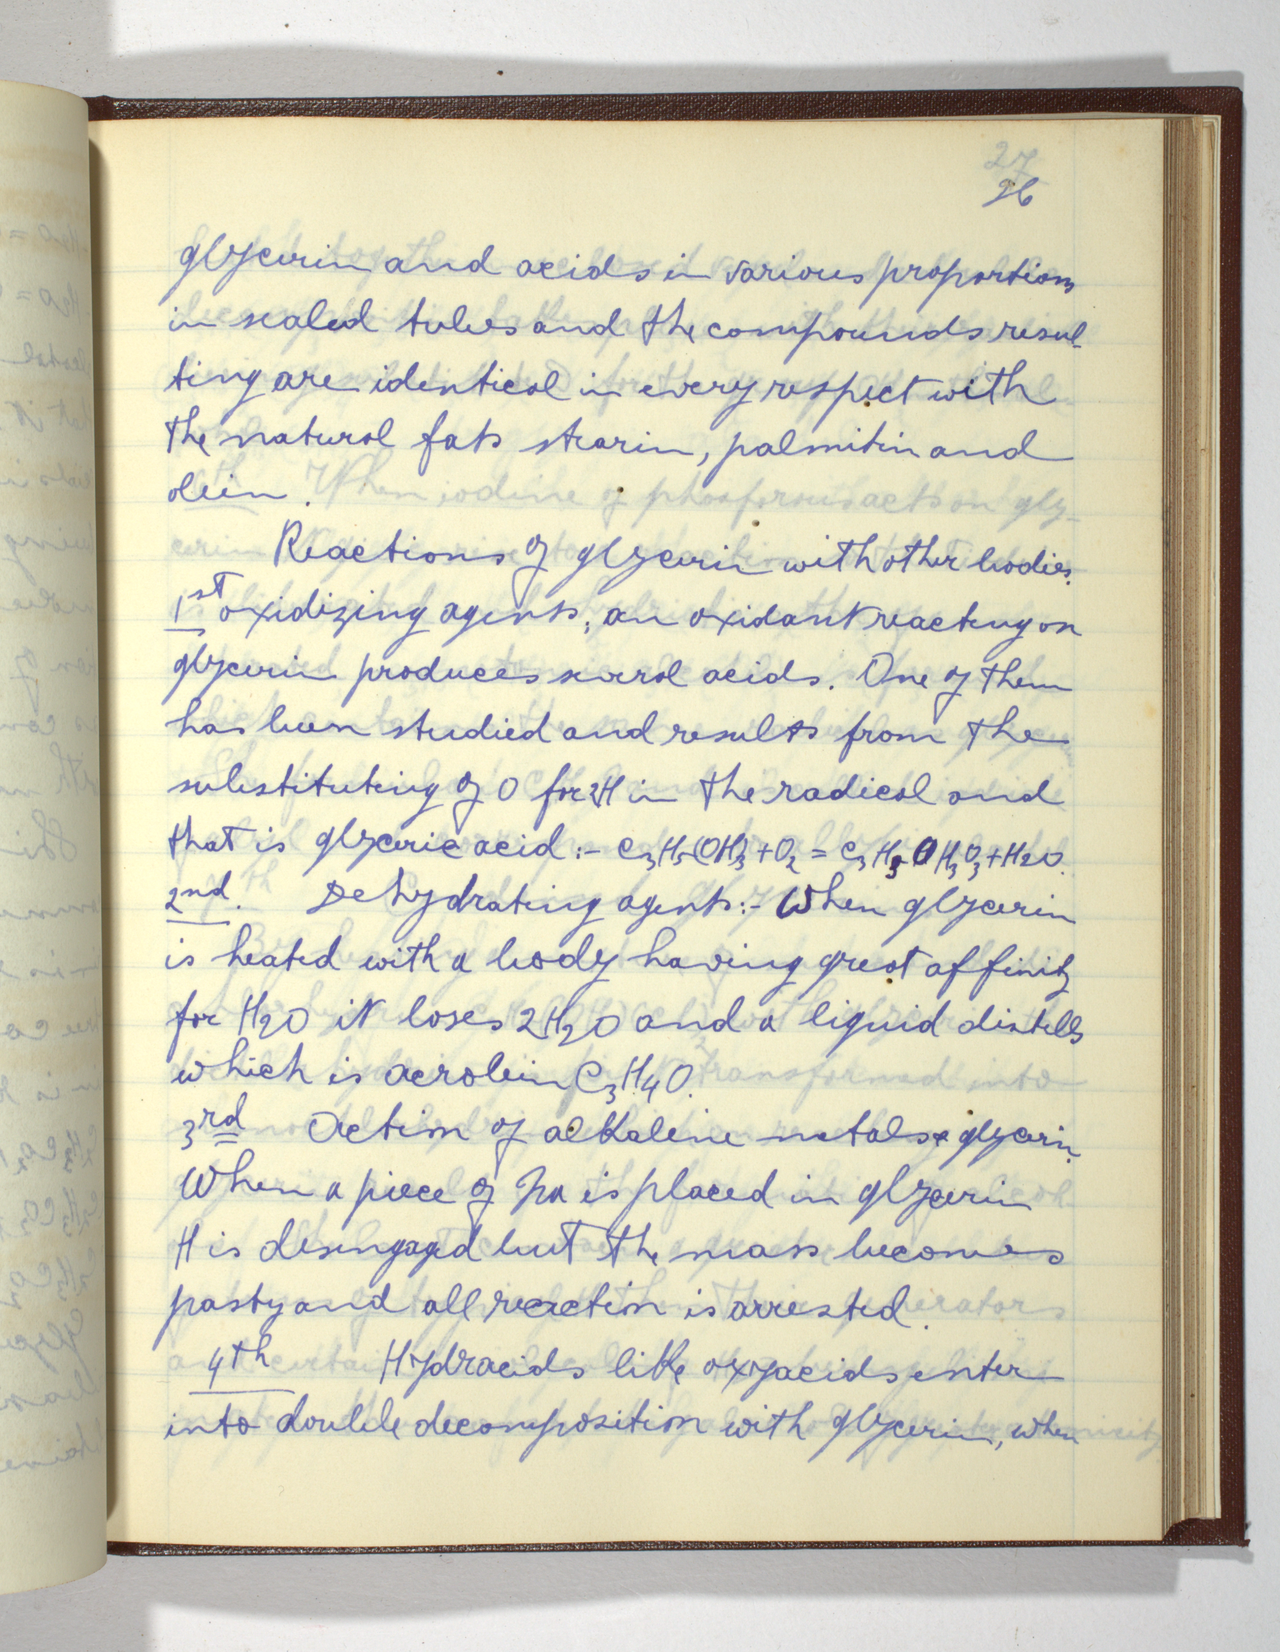 27
26
glycerin and acids in various proportions
in sealed tubes and the compounds resul-
ting are identical in every respect with
the natural fats stearin, palmitin and
olein.
Reactions of glycerin with other bodies.
1st oxidizing agents; an oxidant reacting on
glycerin produces several acids. One of them
has been studied and results from the
substituting of O for 2H in the radical and
that is glyceric acid :- C3H5(OH)3 + O2 = C3H3OH3O3 + H2O.
2nd. Dehydrating agents:- When glycerin
is heated with a body having great affinity
for H2O it loses 2H2O and a liquid distills
which is acrolein C3H4O.
3rd Action of alkaline metals & glycerin.
When a piece of Na is placed in glycerin
H is disengaged but the mass becomes
pasty and all reaction is arrested.
4th Hydracids like oxyacids enter
into double decomposition with glycerin, when